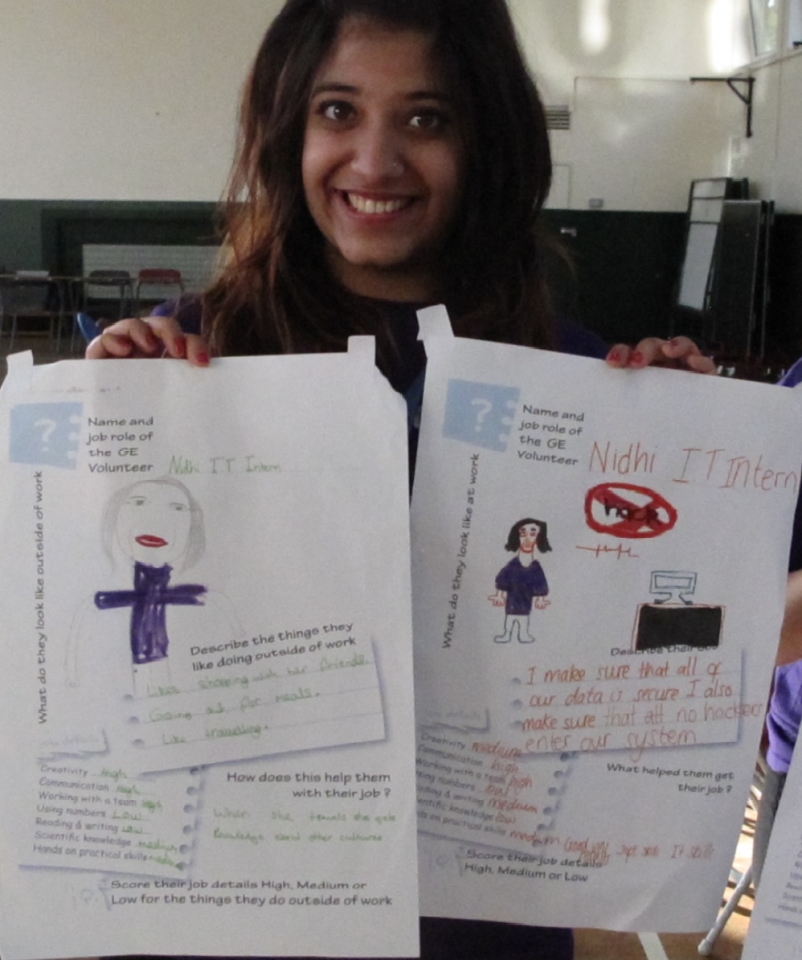 ?
Name and
job role of
the GE
Volunteer
Nidhi IT Intern
What do they look like outside of work
Describe the things they
like doing outside of work
Likes shopping with her friends.
Going out for meals.
Like travelling.
Creativity High
Communication High
Working with a team High
Using numbers Low
Reading & writing Low
Scientific knowledge medium
Hands on practical skills
How does this help them
with their job?
When she travels she gets
Knowledge about other cultures
Score their job details High, Medium or
Low for the things they do outside of work
?
Name and
job role of
the GE
Volunteer
Nidhi IT Intern
What do they look like at work
hack
Describe their
I make sure that all of
our data is secure I also
make sure that all no hackers
enter our system
Creativity medium
Communication high
Working with a team high
numbers low
Reading & writing medium
Scientific knowledge low
on practical skills medium
What helped them get
their job?
IT skills
Score their job details
High, Medium or Low